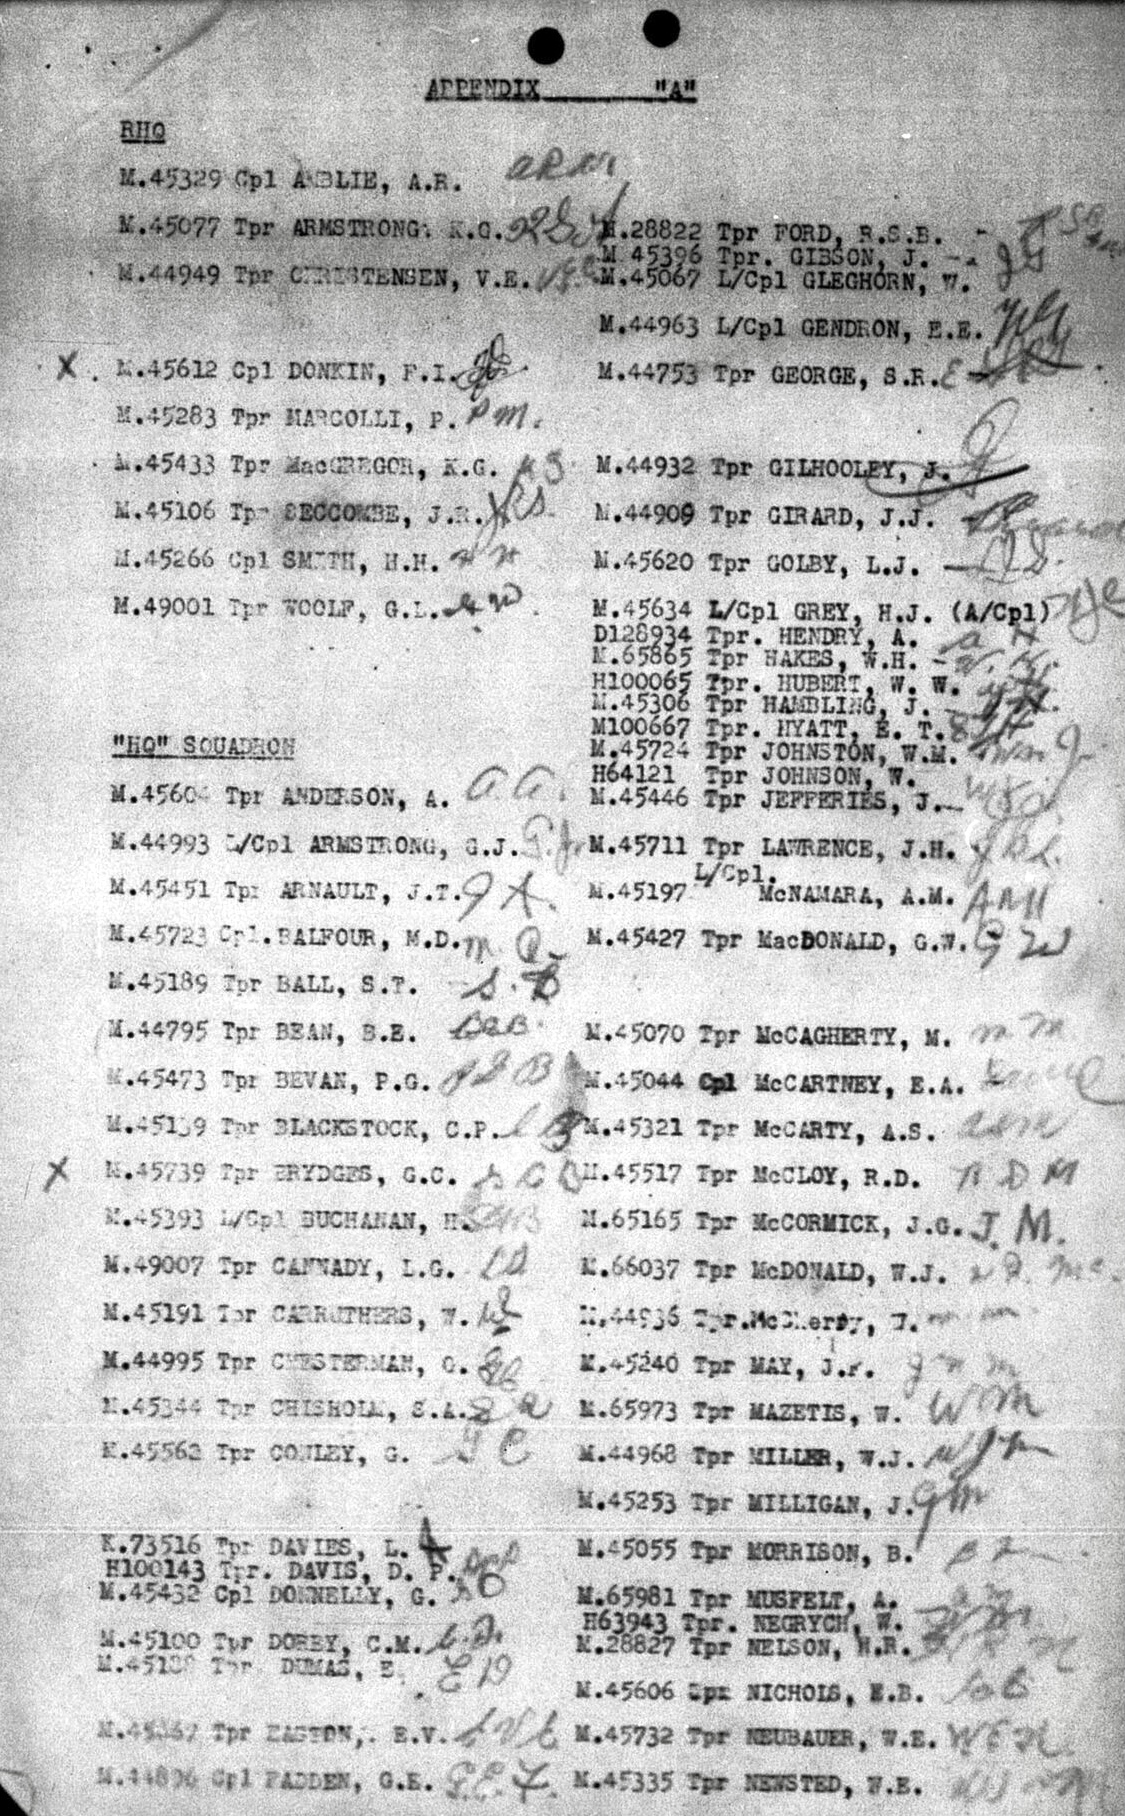 APPENDIX "A"
RHQ
M.45329 Cpl AMBLIE, A.R. ARM
M.45077 Tpr ARMSTRONG, K.G.
M.44949 Tpr CHRISTENSEN, V.E.
X M.45612 Cpl DONKIN, F.I.
M.45283 Tpr MARCOLLI, P. P M.
M.45433 Tpr MacGREGOR, K.G.
M.45106 Tpr SECCOMBE, J.R. JRS.
M.45266 Cpl SMITH, H.H. H H
M.49001 Tpr WOOLF, G.L.
"HQ" SQUADRON
M.45604 Tpr ANDERSON, A. A. A.
M.44993 L/Cpl ARMSTRONG, G.J. G.J.
M.45451 Tpr ARNAULT, J.T. J A.
M.45723 Cpl. BALFOUR, M.D.
M.45189 Tpr BALL, S.T. S. B
M.44795 Tpr BEAN, B.E. BEB.
M.45473 Tpr BEVAN, P.G. P G B
M.45139 Tpr BLACKSTOCK, C.P. C B
X M.45739 Tpr BRYDGES, G.C. G C B
M.45393 L/Cpl BUCHANAN, H.
M.49007 Tpr CANNADY, L.G.
M.45191 Tpr CARRUTHERS, W.
M.44995 Tpr CHESTERMAN, G.
M.45344 Tpr CHISHOLM, S.A.
M.45562 Tpr CONLEY, G. G C
K.73516 Tpr DAVIES, L.
H100143 Tpr. DAVIS, D. P.
M.45432 Cpl DONNELLY, G.
M.45100 Tpr DOREY, C.M. C.D.
Tpr DUMAS, E. E D
Tpr EASTON, E.V. E V E
M.44896 Cpl FADDEN, G.E. G.E.F.
M.28822 Tpr FORD, R.S.B.
M 45396 Tpr. GIBSON, J. - JG
M.45067 L/Cpl GLEGHORN, W.
M.44963 L/Cpl GENDRON, E.E. WG
M.44753 Tpr GEORGE, S.R.
M.44932 Tpr GILHOOLEY, J.
M.44909 Tpr GIRARD, J.J.
M.45620 Tpr GOLBY, L.J.
M.45634 L/Cpl GREY, H.J. (A/Cpl)
D128934 Tpr. HENDRY, A. A H
M.65865 Tpr HAKES, W.H. - W. H.
H100065 Tpr. HUBERT, W. W.
M.45306 Tpr HAMBLING, J. - J H.
M100667 Tpr. HYATT, E. T.
M.45724 Tpr JOHNSTON, W.M. Wm J.
H64121 Tpr JOHNSON, W.
M.45446 Tpr JEFFERIES, J.
M.45711 Tpr LAWRENCE, J.H. JHL.
M.45197 L/Cpl. McNAMARA, A.M. AMM
M.45427 Tpr MacDONALD, G.W. G W
M.45070 Tpr McCAGHERTY, M. m m
M.45044 Cpl McCARTNEY, E.A.
M.45321 Tpr McCARTY, A.S. asm
M.45517 Tpr McCLOY, R.D. R D M
M.65165 Tpr McCORMICK, J.G. J. M.
K.66037 Tpr McDONALD, W.J.
M.44936 Tpr.
M.45240 Tpr MAY, J.F.
M.65973 Tpr MAZETIS, W. W M
M.44968 Tpr MILLER, W.J. WJM
M.45253 Tpr MILLIGAN, J. JM
M.45055 Tpr MORRISON, B.
M.65981 Tpr MUSFELT, A.
H63943 Tpr. NEGRYCH, W.
M.28827 Tpr NELSON, H.R.
M.45606 NICHOLS, E.B.
M.45732 Tpr NEUBAUER, W.E. WEN.
M.45335 Tpr NEWSTED, W.E.